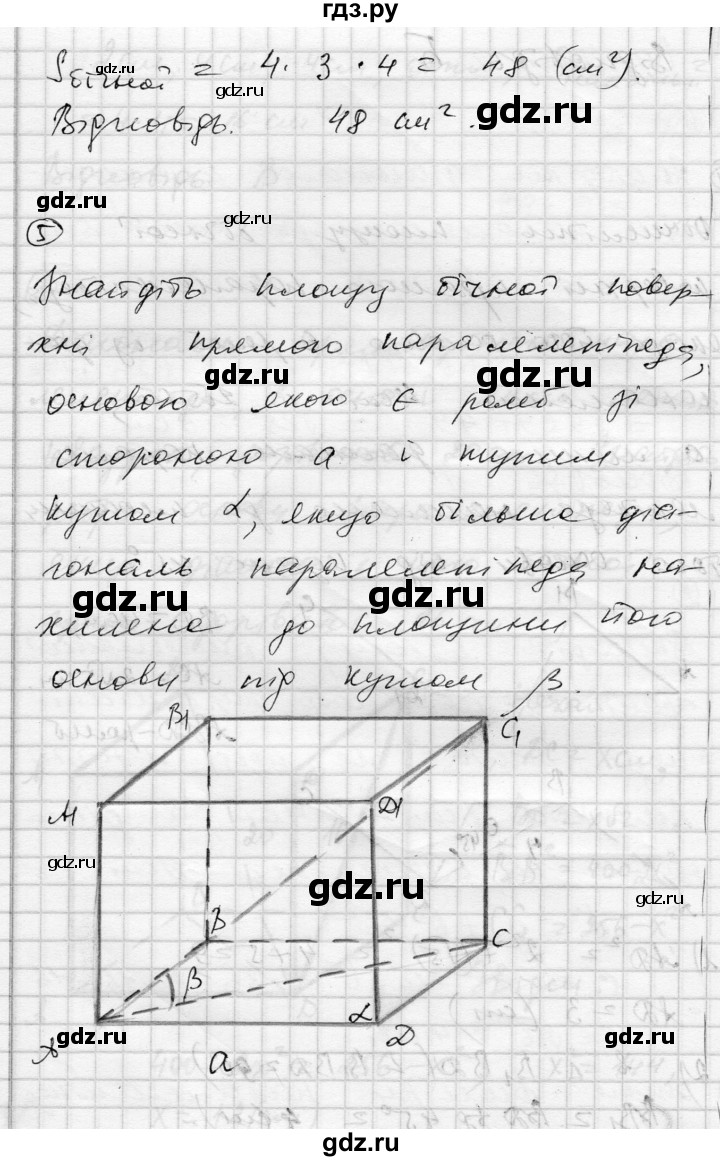 гдз.ру
Sбічної = 4 · 3 · 4 = 48 (см²).
gdz.ru
Відповідь. 48 см².
gdz.ru
gdz.ru
gdz.ru
5
Знайдіть площу бічної повер-
хні прямого паралелепіпеда,
gdz.ru
gdz.ru
основою якого є ромб зі
стороною a і тупим
кутом α, якщо більша діа-
гональ паралелепіпеда на-
gdz.ru
gdz.ru
хилена до площини його
основи під кутом β.
B1
C1
A1
D1
gdz.ru
gdz.ru
gdz.ru
B
C
β
α
gdz.ru
gdz.ru
A
a
D
gdz.ru